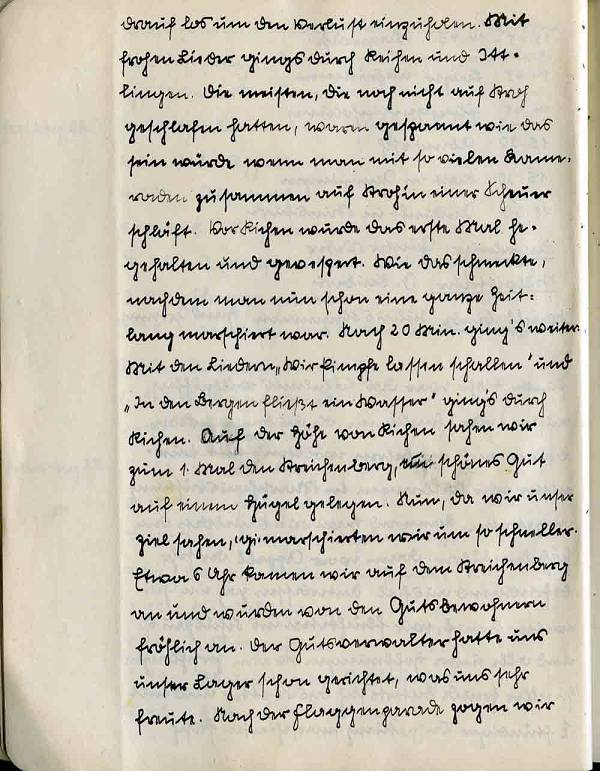 drauf los um den Verlust einzuholen. Mit
frohen Lieder gings durch Reihen und Itt-
lingen. Die meisten, die noch nicht auf Stroh
geschlafen hatten, waren gespannt wie das
sein würde wenn man mit so vielen Kame-
raden zusammen auf Stroh in einer Scheuer
schläft. Vor Richen wurde das erste Mal he-
gehalten und gevespert. Wie das schmeckte,
nachdem man nun schon eine ganze Zeit-
lang marschiert war. Nach 20 Min. ging's weiter
Mit den Liedern „Wir Kimpfe lassen schallen" und
„In den Bergen fließt ein Wasser" ging's durch
Richen. Auf der Höhe von Richen sahen wir
zum 1. Mal den Streichenberg, schönes Gut
auf einem Hügel gelegen. Nun, da wir unser
Ziel sahen, marschierten wir um so schneller.
Etwa 6 Uhr kamen wir auf dem Streichenberg
an und wurden von den Gutsbewohnern
fröhlich an. Der Gutsverwalter hatte uns
unser Lager schon gerichtet, was uns sehr
freute. Nach der Flaggenparade zogen wir